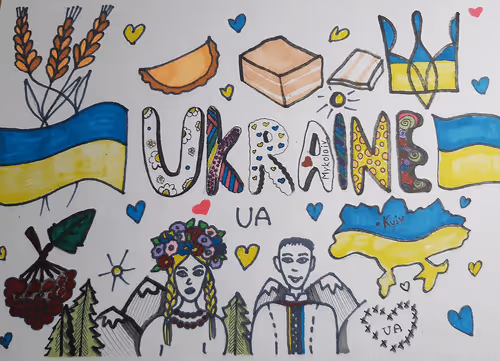 UKRAINE
Mykolaiv
UA
Kyiv
UA